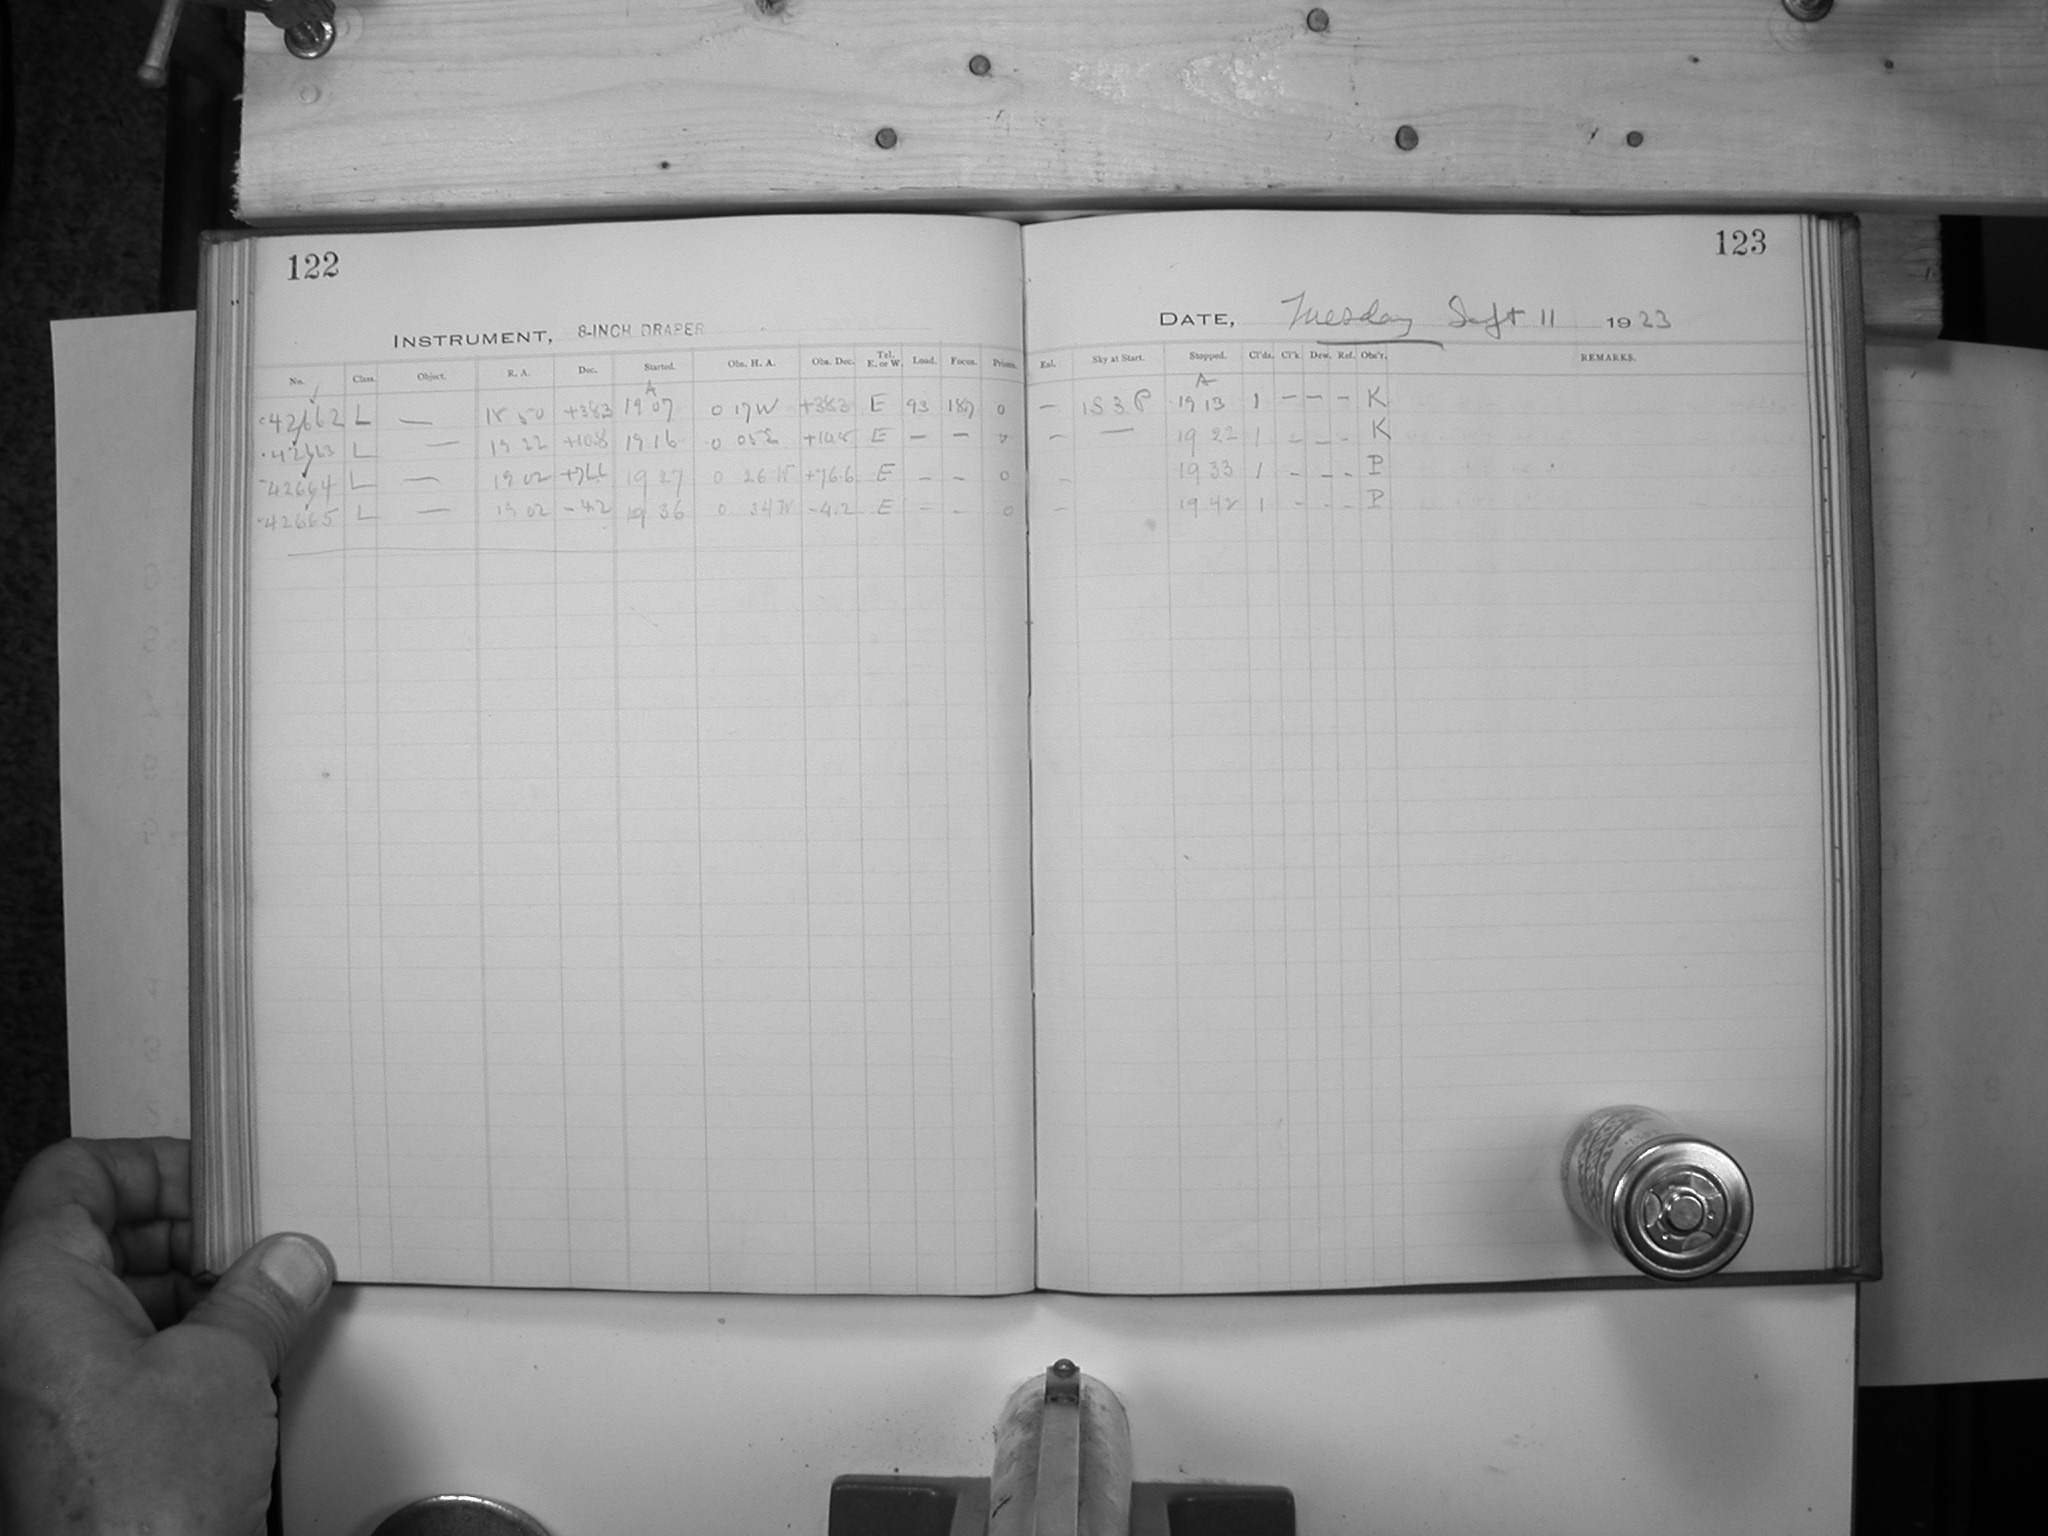 122
INSTRUMENT, 8-INCH DRAPER
No. Class. Object. R. A. Dec. Started. Obs. H. A. Obs. Dec. Tel. E. or W. Load. Focus. Prisms.
A
42662 L — 18 50 +383 19 07 0 17W +383 E 93 187 0
L — 19 22 +108 19 16 0 05E +10.8 E — — 0
42664 L — 19 02 +766 19 27 0 26 W +76.6 E — — 0
42665 L — 19 02 -4.2 19 36 0 34W -4.2 E — — 0
123
DATE, Tuesday Sept 11 1923
Enl. Sky at Start. Stopped. Cl'ds. Cl'k Dew. Ref. Obs'r. REMARKS.
A
— 1S 3 P 19 13 1 — — — K
— — 19 22 1 — — — K
— 19 33 1 — — — P
— 19 42 1 — — — P